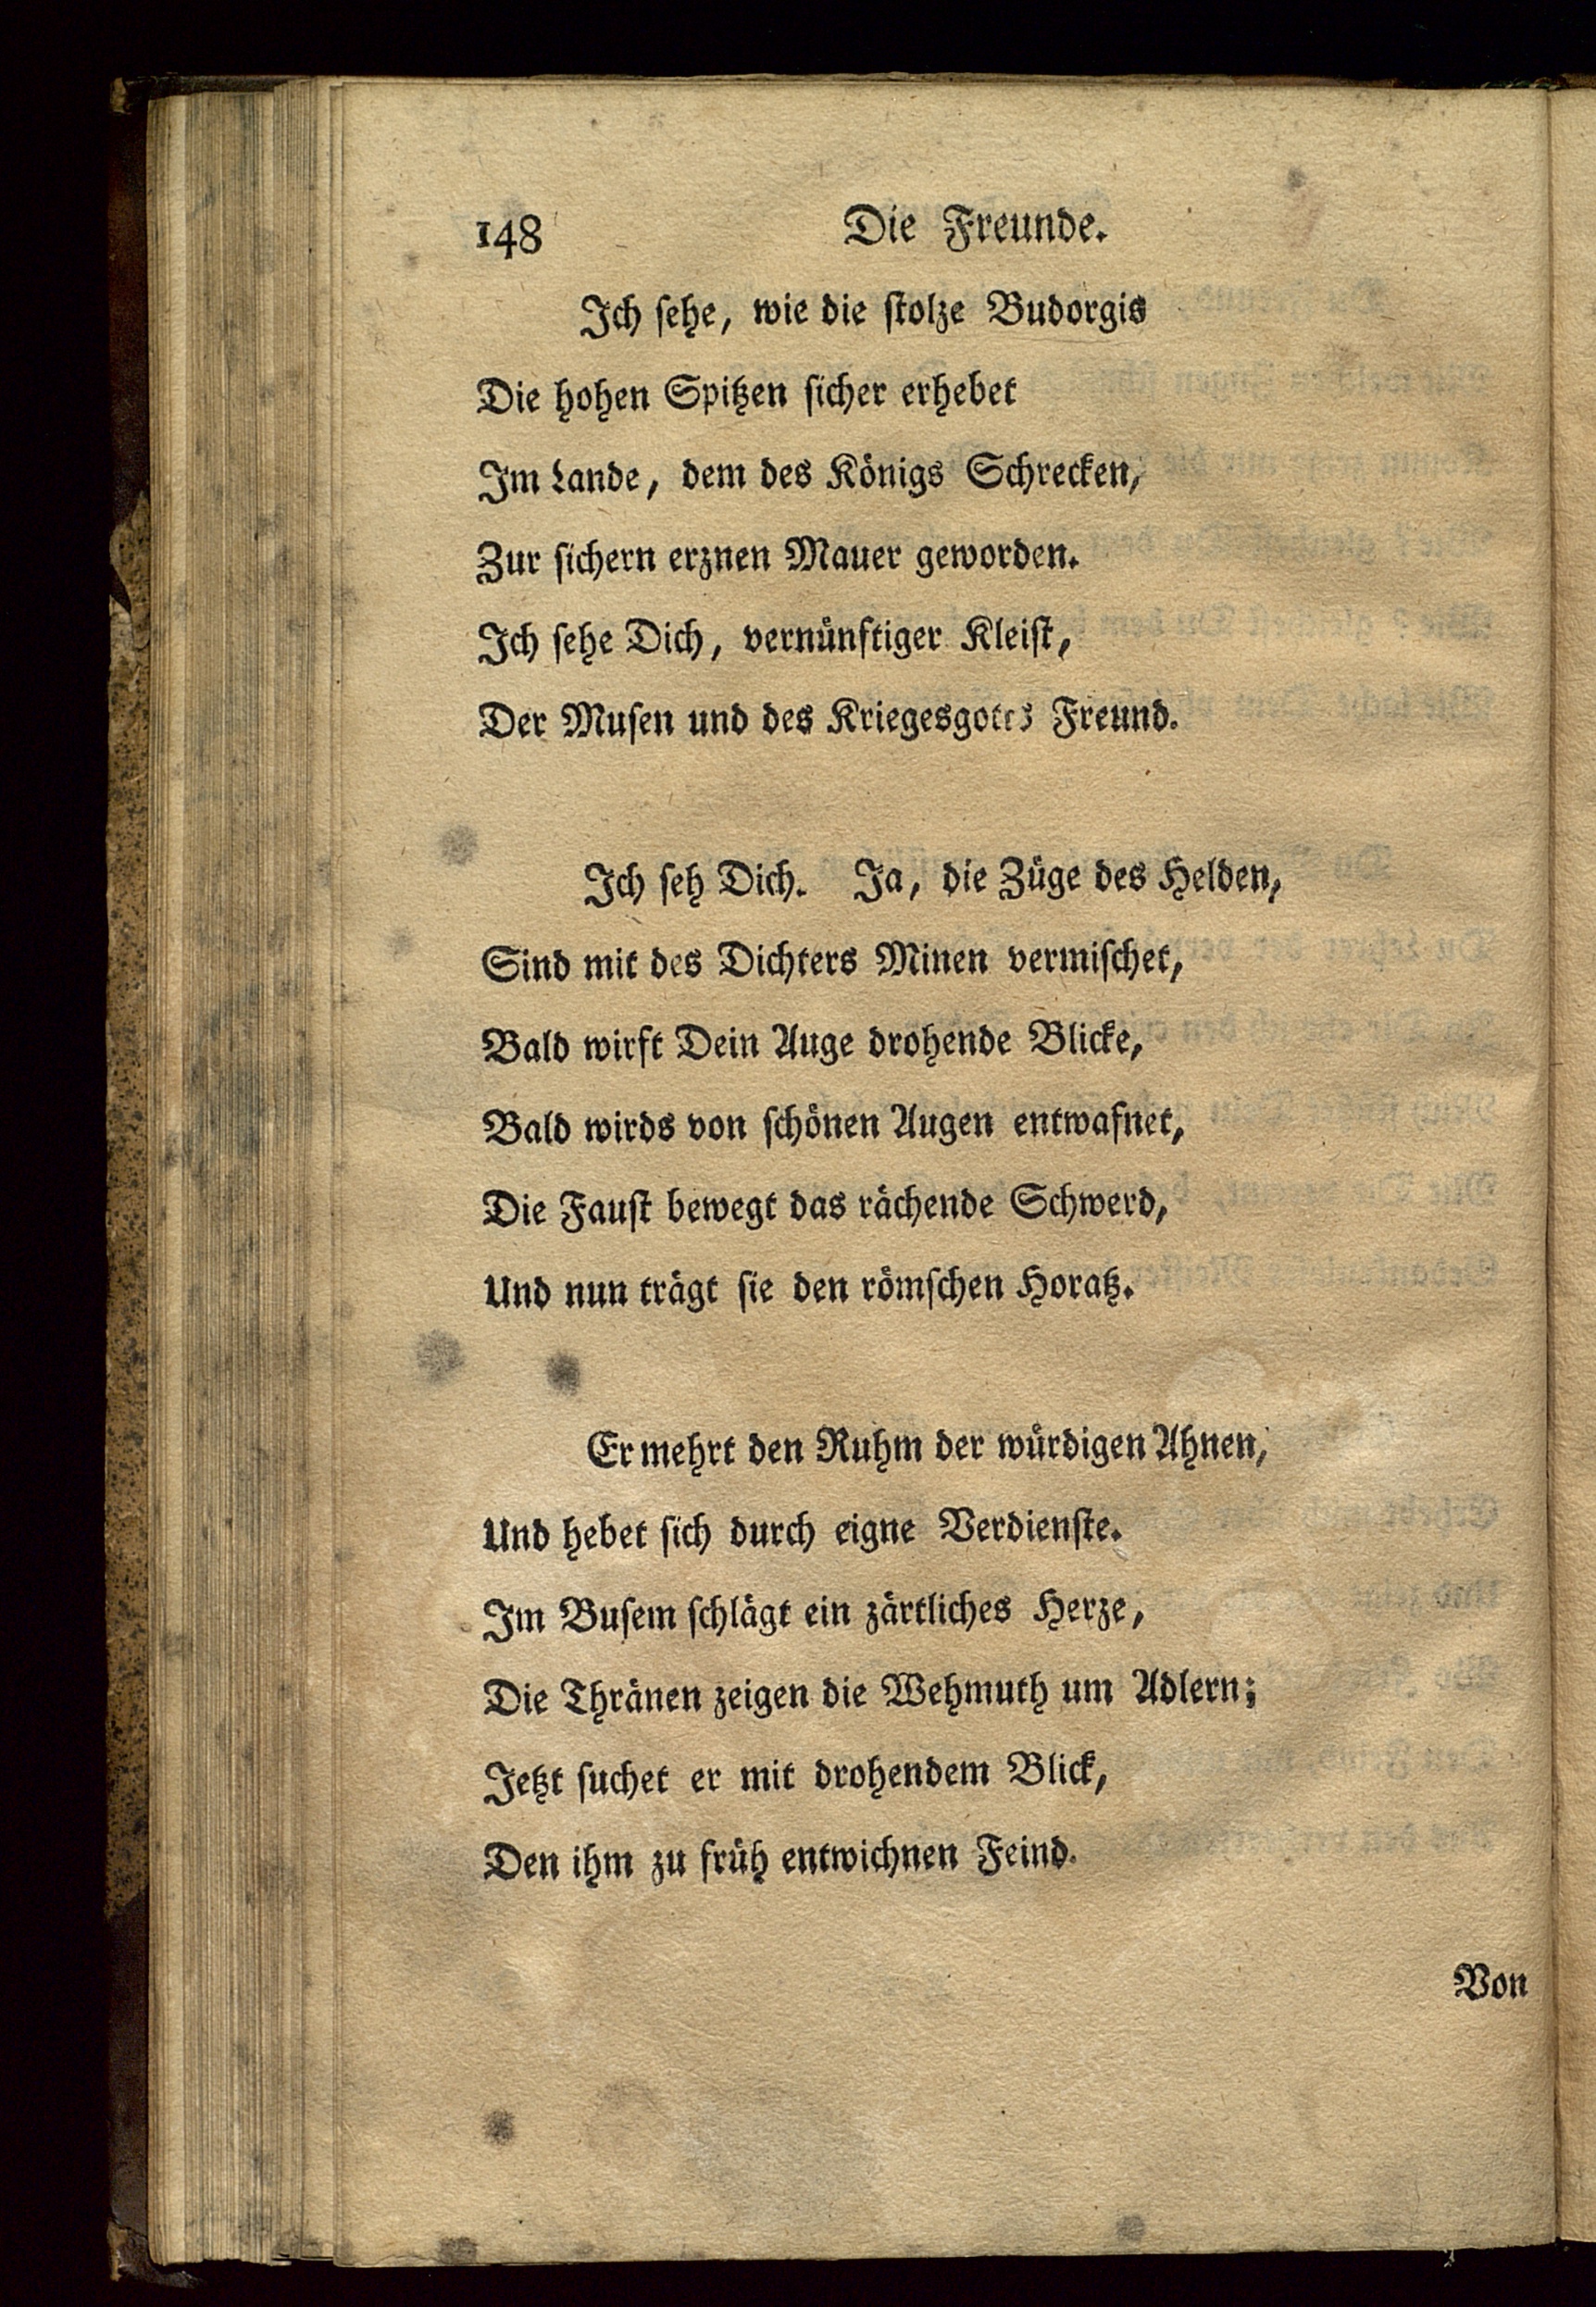 148 Die Freunde.
Ich sehe, wie die stolze Budorgis
Die hohen Spitzen sicher erhebet
Im Lande, dem des Königs Schrecken,
Zur sichern erznen Mauer geworden.
Ich sehe Dich, vernünftiger Kleist,
Der Musen und des Kriegesgotes Freund.
Ich seh Dich. Ja, die Züge des Helden,
Sind mit des Dichters Minen vermischet,
Bald wirft Dein Auge drohende Blicke,
Bald wirds von schönen Augen entwafnet,
Die Faust bewegt das rächende Schwerd,
Und nun trägt sie den römschen Horatz.
Er mehrt den Ruhm der würdigen Ahnen,
Und hebet sich durch eigne Verdienste.
Im Busem schlägt ein zärtliches Herze,
Die Thränen zeigen die Wehmuth um Adlern;
Jetzt suchet er mit drohendem Blick,
Den ihm zu früh entwichnen Feind.
Von